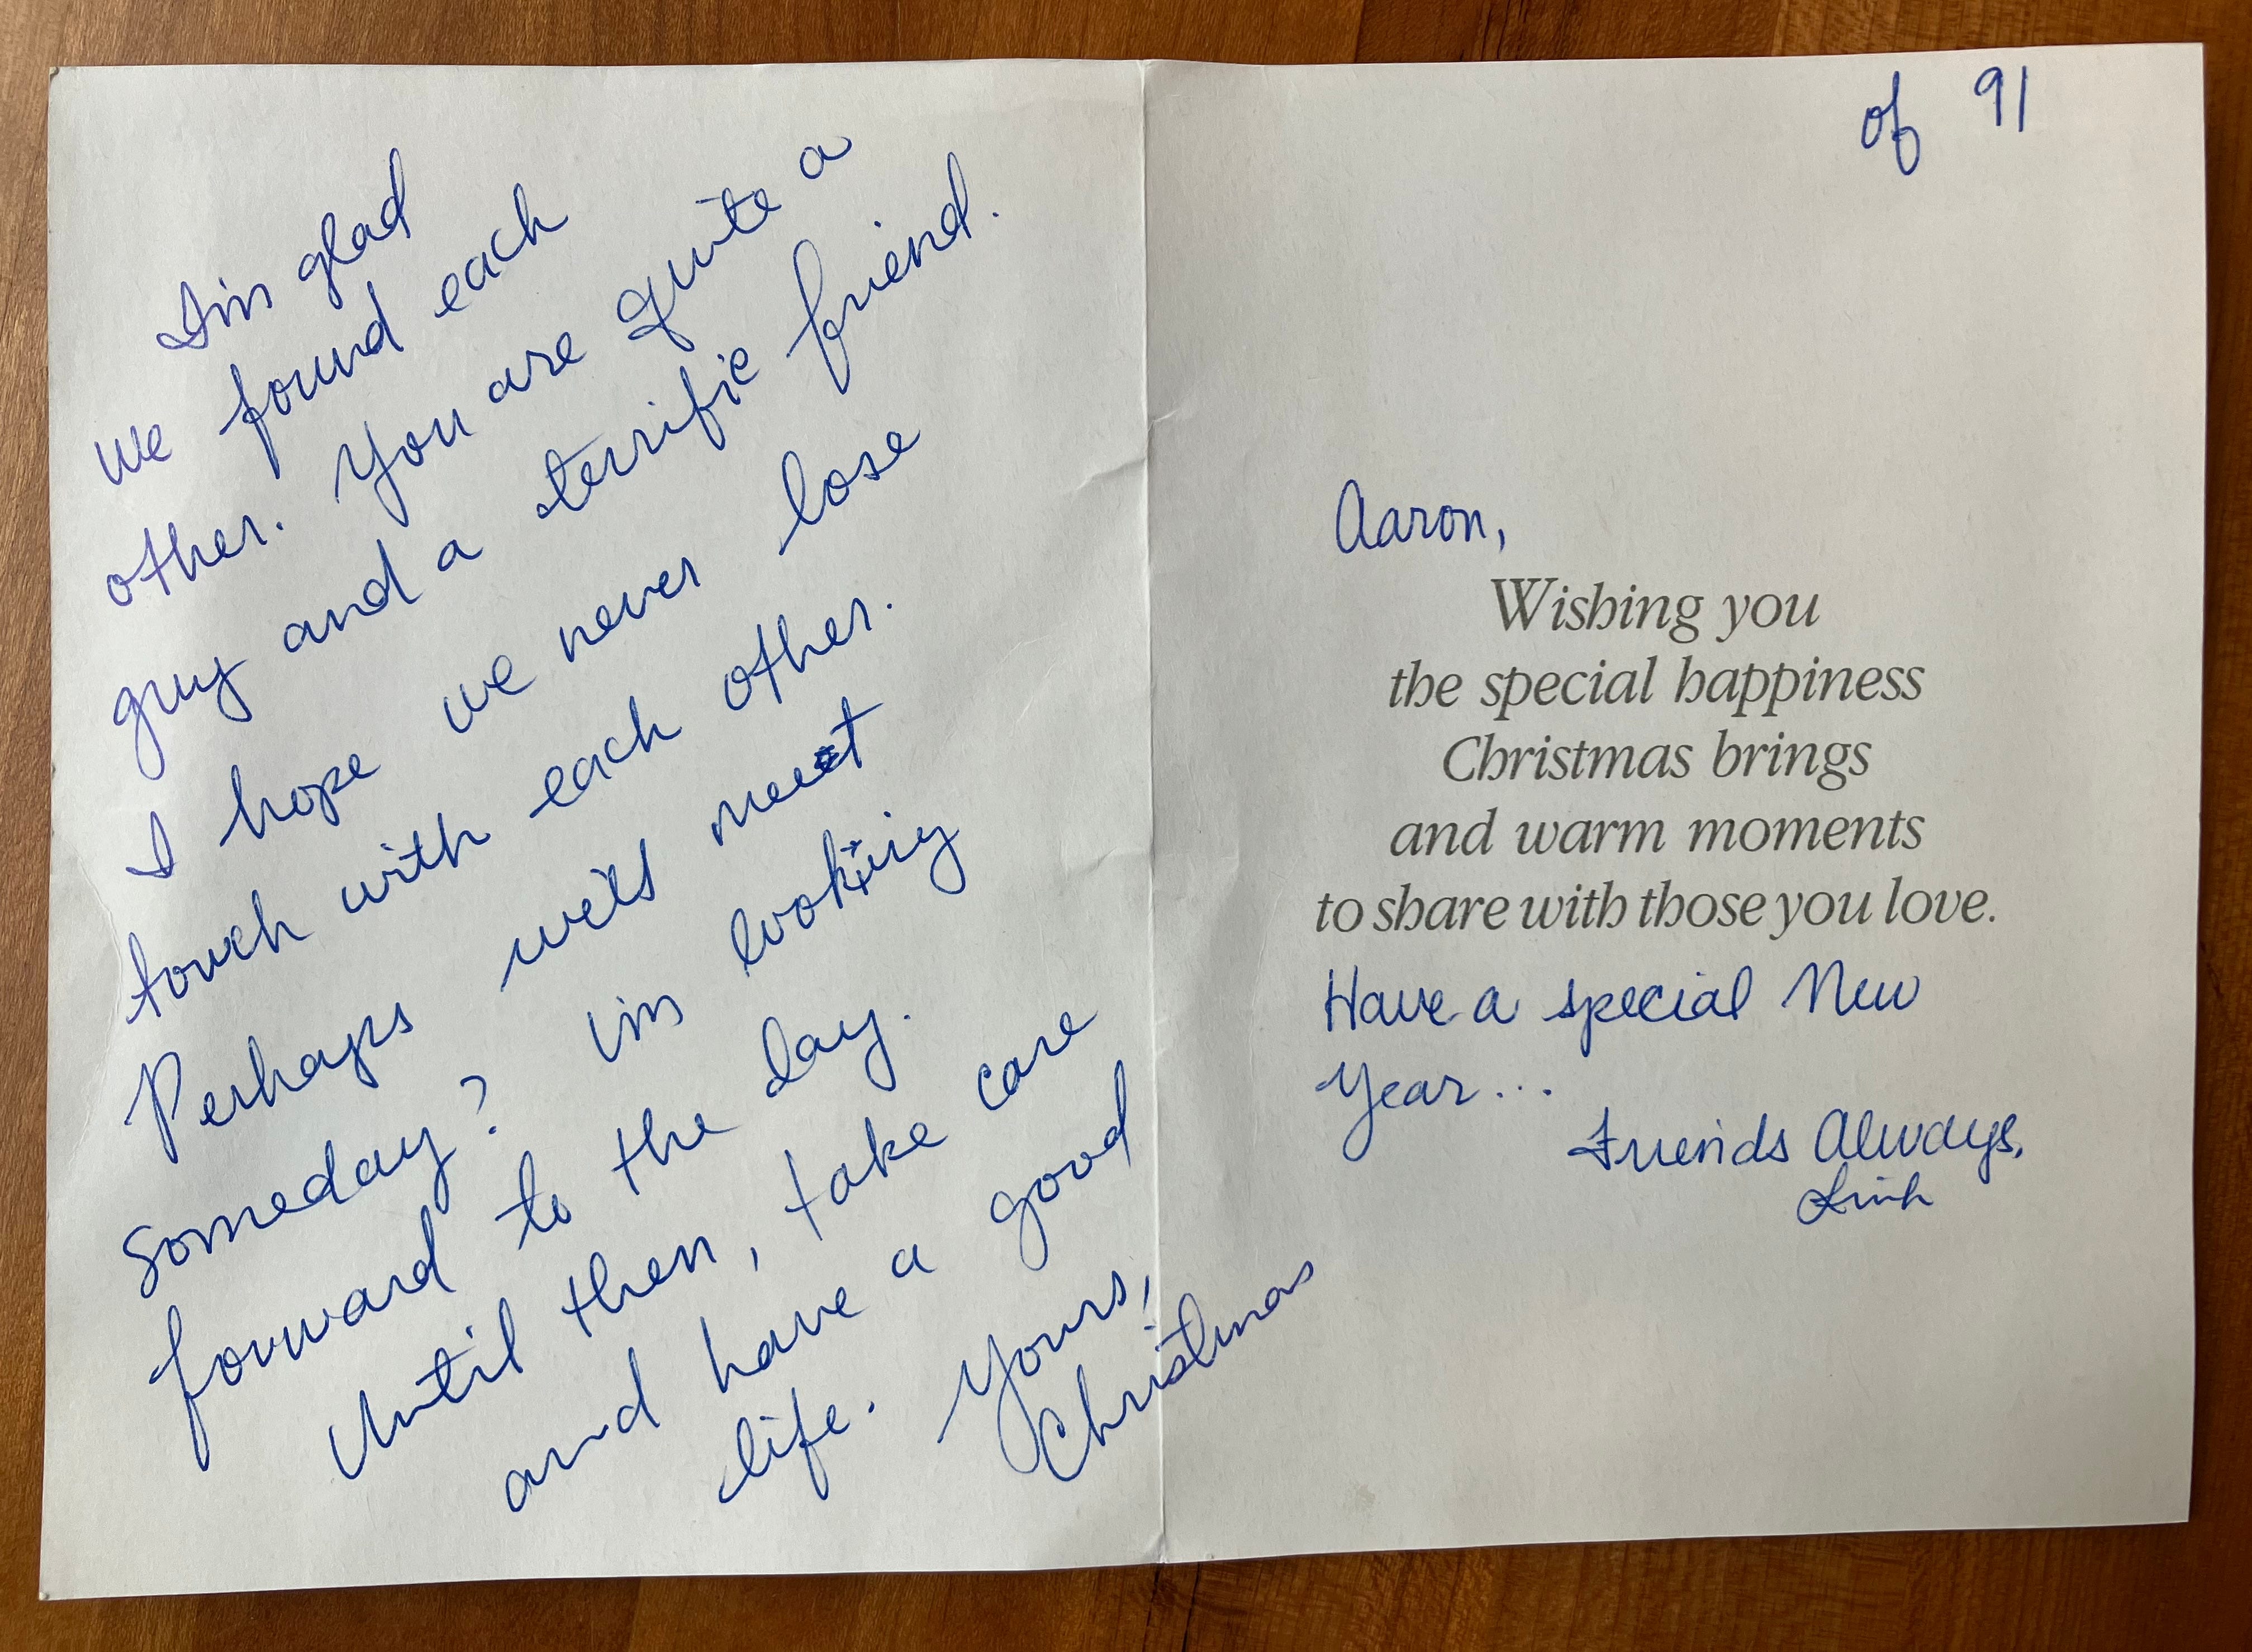 I'm glad
we found each
other. You are quite a
guy and a terrific friend.
I hope we never lose
touch with each other.
Perhaps we'll meet
someday? I'm looking
forward to the day.
Until then, take care
and have a good
life. Yours,
Christmas
of 91
Aaron,
Wishing you
the special happiness
Christmas brings
and warm moments
to share with those you love.
Have a special New
Year...
Friends Always,
Linh